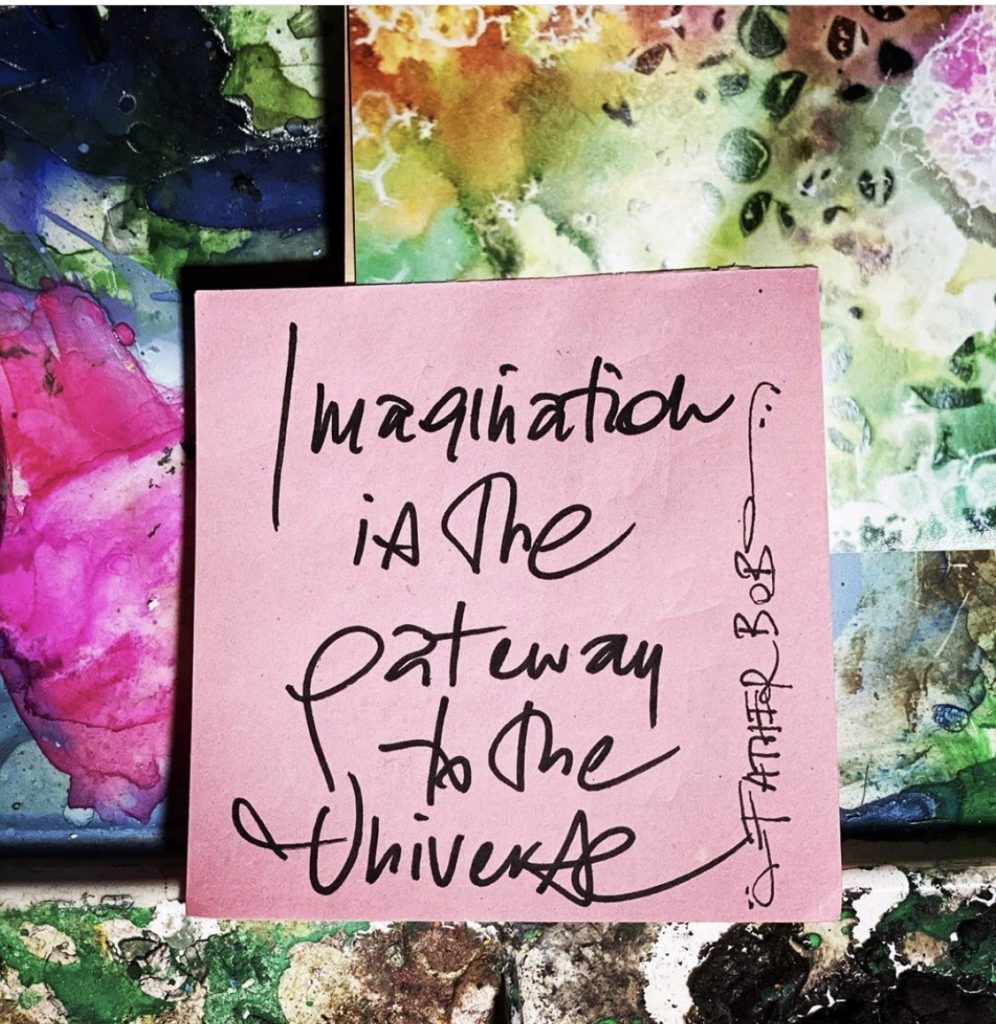 Imagination
is the
gateway
to the
Universe
FATHER BOB